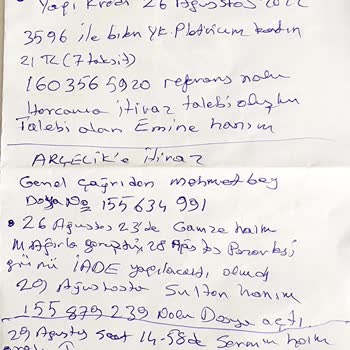 Yapı Kredi 26 Ağustos 2022
3596 ile biten YK. Platinium kartın
21 TL (7 taksit)
160 356 5920 referans nolu
Harcama itiraz talebi oluştu
Talebi alan Emine hanım
ARÇELİK'e itiraz
Genel çağrıdan mehmet bey
Dosya No 155 634 991
• 26 Ağustos 23'de Gamze hanım
Mağ görüştü 28 Ağustos Pazartesi
günü İADE yapılacaktı olmadı
29 Ağustosta Sultan hanım
155 879 239 Nolu Dosya açtı
29 Ağustos Saat 14-58de hanım